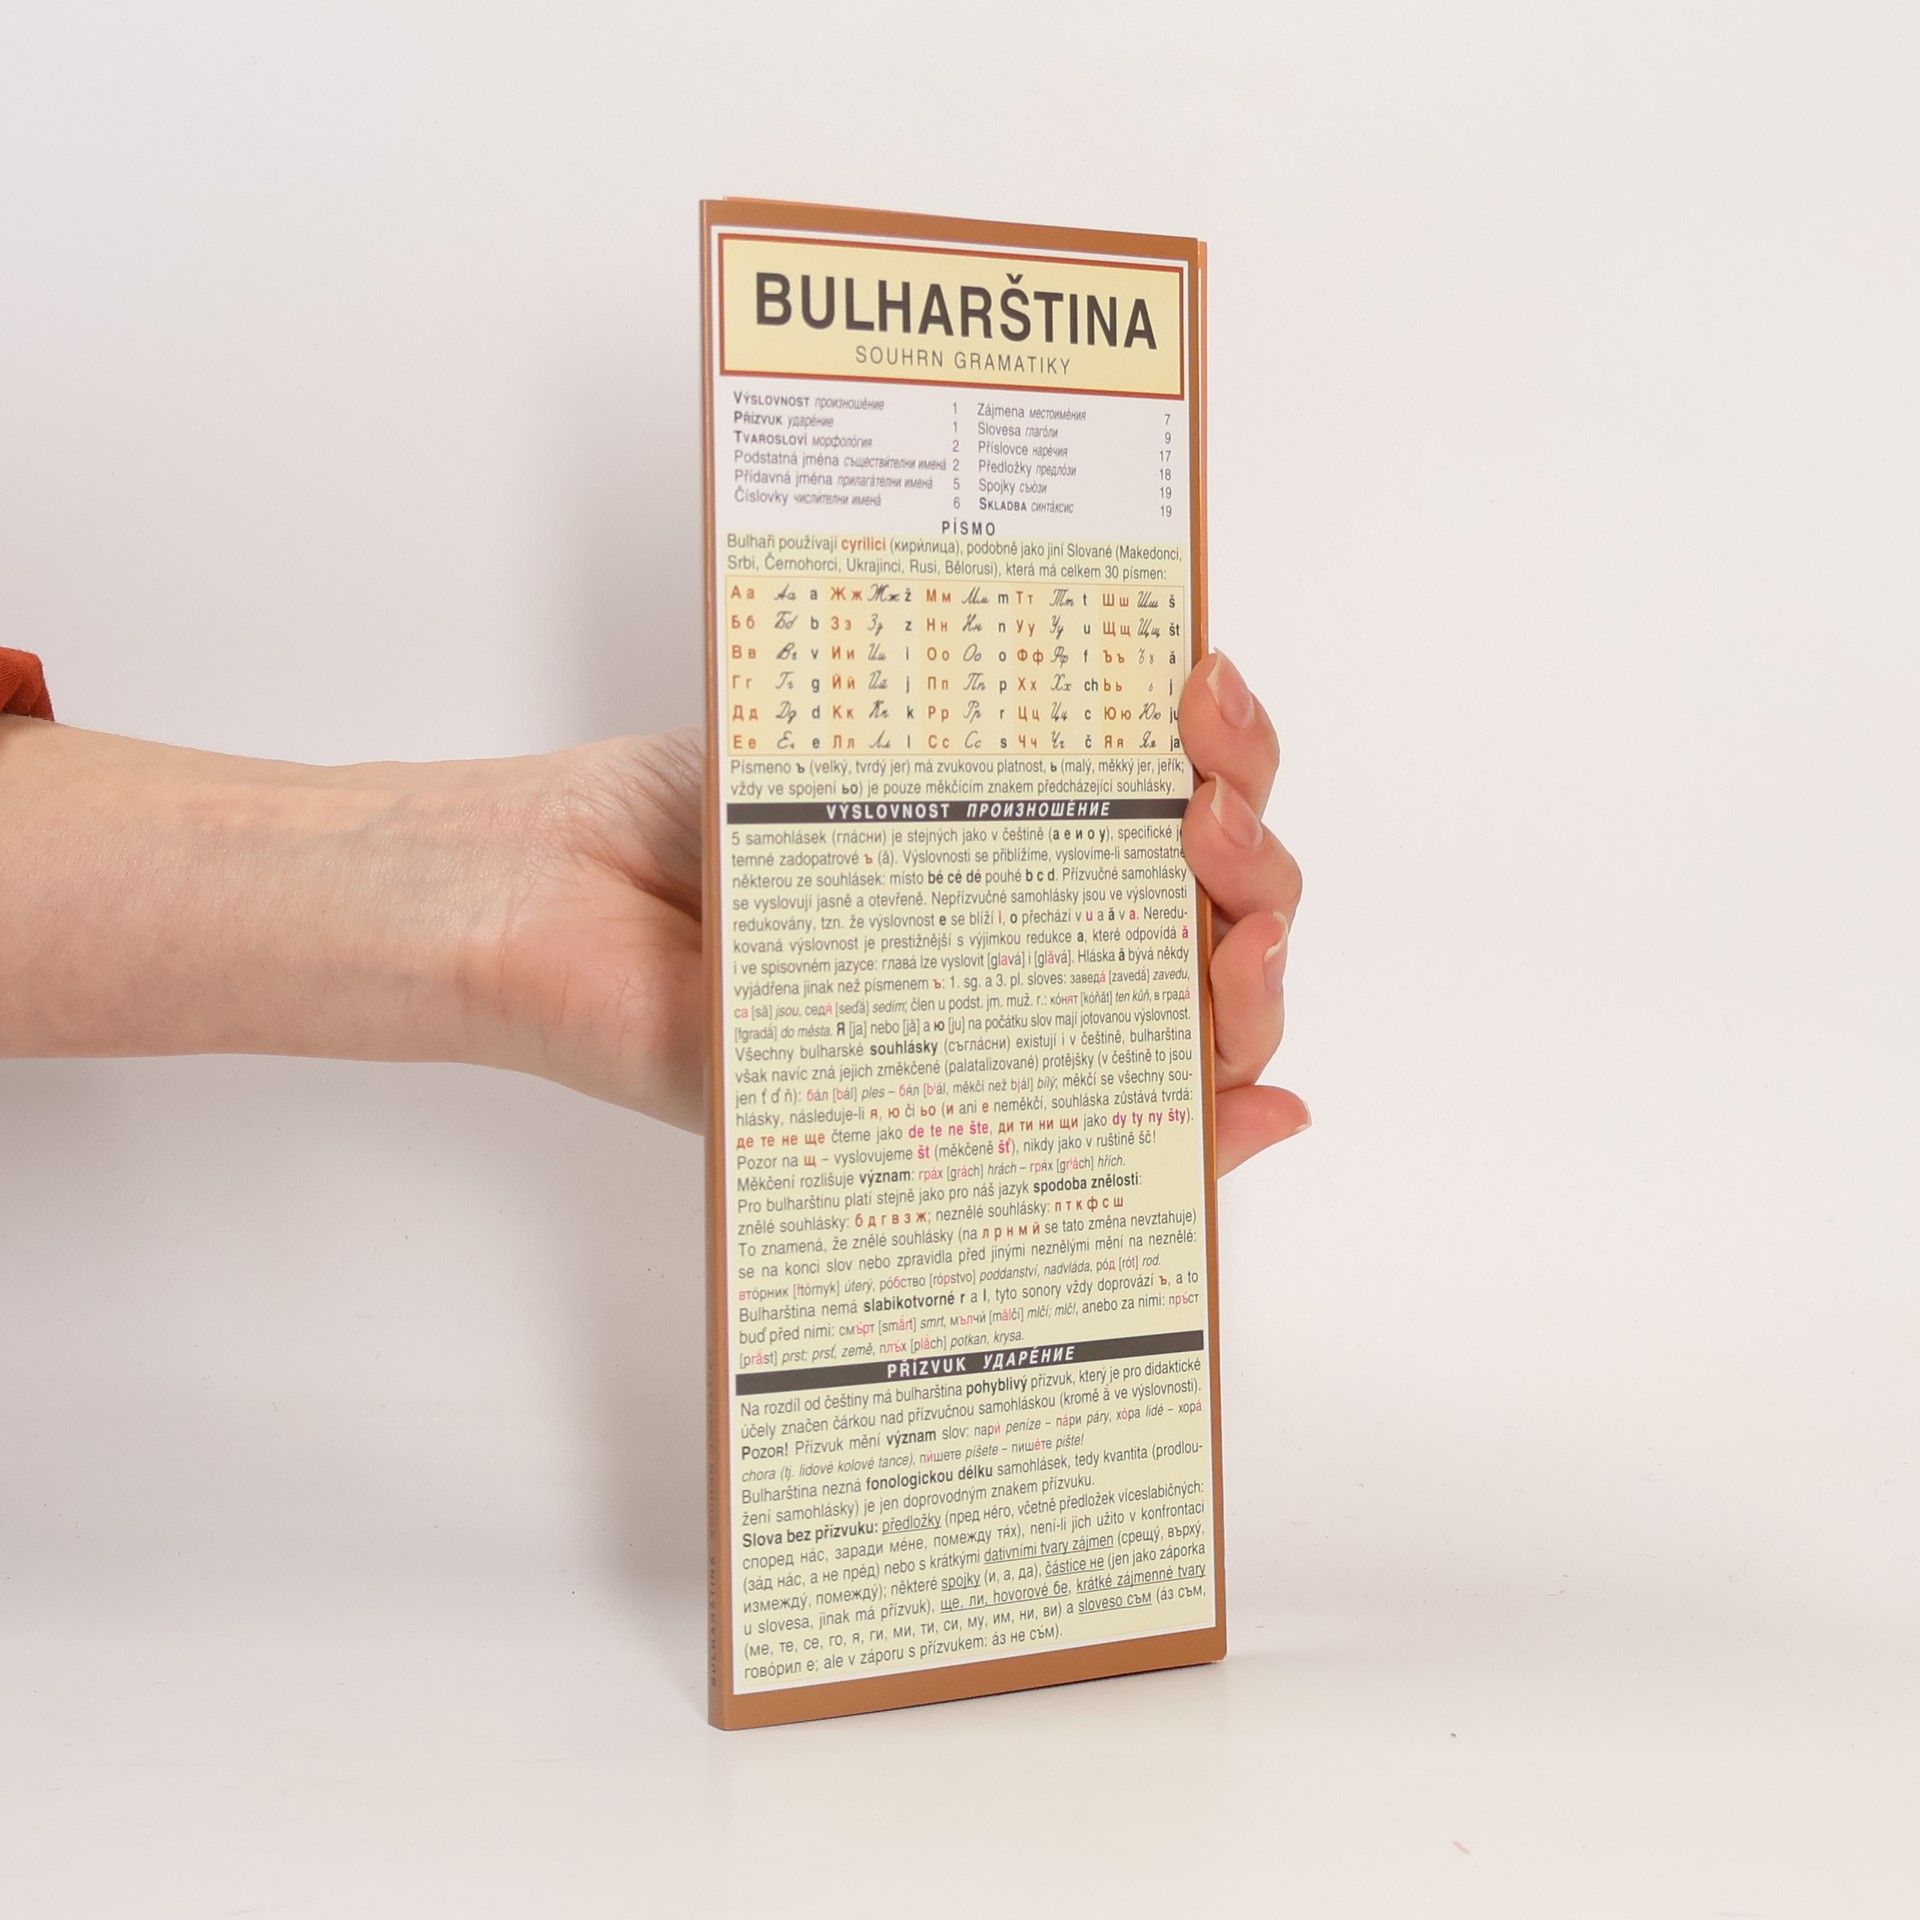 BULHARŠTINA
SOUHRN GRAMATIKY
VÝSLOVNOST произношéние 1
PŘÍZVUK ударéние 1
TVAROSLOVÍ морфолóгия 2
Podstatná jména съществи́телни именá 2
Přídavná jména прилагáтелни именá 5
Číslovky числи́телни именá 6
Zájmena местоимéния 7
Slovesa глагóли 9
Příslovce нарéчия 17
Předložky предлóзи 18
Spojky съю́зи 19
SKLADBA синтáксис 19
PÍSMO
Bulhaři používají cyrilici (кири́лица), podobně jako jiní Slované (Makedonci,
Srbi, Černohorci, Ukrajinci, Rusi, Bělorusi), která má celkem 30 písmen:
А а Аа a Ж ж Жж ž М м Мм m Т т Тт t Ш ш Шш š
Б б Бб b З з Зз z Н н Нн n У у Уу u Щ щ Щщ št
В в Вв v И и Ии i О о Оо o Ф ф Фф f Ъ ъ Ъъ ă
Г г Гг g Й й Йй j П п Пп p Х х Хх ch Ь ь ь j
Д д Дд d К к Кк k Р р Рр r Ц ц Цц c Ю ю Юю ju
Е е Ее e Л л Лл l С с Сс s Ч ч Чч č Я я Яя ja
Písmeno ъ (velký, tvrdý jer) má zvukovou platnost, ь (malý, měkký jer, jeřík;
vždy ve spojení ьо) je pouze měkčícím znakem předcházející souhlásky.
VÝSLOVNOST ПРОИЗНОШÉНИЕ
5 samohlásek (глáсни) je stejných jako v češtině (а е и о у), specifické je
temné zadopatrové ъ (ă). Výslovnosti se přiblížíme, vyslovíme-li samostatně
některou ze souhlásek: místo bé cé dé pouhé b c d. Přízvučné samohlásky
se vyslovují jasně a otevřeně. Nepřízvučné samohlásky jsou ve výslovnosti
redukovány, tzn. že výslovnost e se blíží i, o přechází v u a ă v a. Neredu-
kovaná výslovnost je prestižnější s výjimkou redukce a, které odpovídá ă
i ve spisovném jazyce: главá lze vyslovit [glavá] i [glăvá]. Hláska ă bývá někdy
vyjádřena jinak než písmenem ъ: 1. sg. a 3. pl. sloves: заведá [zavedắ] zavedu,
са [să] jsou, седя́ [seďắ] sedím; člen u podst. jm. muž. r.: кóнят [kóňăt] ten kůň, в градá
[fgradắ] do města. Я [ja] nebo [jă] a ю [ju] na počátku slov mají jotovanou výslovnost.
Všechny bulharské souhlásky (съглáсни) existují i v češtině, bulharština
však navíc zná jejich změkčené (palatalizované) protějšky (v češtině to jsou
jen ť ď ň): бáл [bál] ples – бя́л [bʲál, měkčí než bjál] bílý; měkčí se všechny sou-
hlásky, následuje-li я, ю či ьо (и ani е neměkčí, souhláska zůstává tvrdá:
де те не ще čteme jako de te ne šte, ди ти ни щи jako dy ty ny šty).
Pozor na щ – vyslovujeme št (měkčeně šť), nikdy jako v ruštině šč!
Měkčení rozlišuje význam: грáх [grách] hrách – гря́х [grʲách] hřích.
Pro bulharštinu platí stejně jako pro náš jazyk spodoba znělosti:
znělé souhlásky: б д г в з ж; neznělé souhlásky: п т к ф с ш
To znamená, že znělé souhlásky (na л р н м й se tato změna nevztahuje)
se na konci slov nebo zpravidla před jinými neznělými mění na neznělé:
втóрник [ftórnyk] úterý, рóбство [rópstvo] poddanství, nadvláda, рóд [rót] rod.
Bulharština nemá slabikotvorné r a l, tyto sonory vždy doprovází ъ, a to
buď před nimi: смъ́рт [smắrt] smrt, мълчи́ [mălčí] mlčí; mlč!, anebo za nimi: пръ́ст
[prắst] prst; prsť, země, плъ́х [plắch] potkan, krysa.
PŘÍZVUK УДАРÉНИЕ
Na rozdíl od češtiny má bulharština pohyblivý přízvuk, který je pro didaktické
účely značen čárkou nad přízvučnou samohláskou (kromě ă ve výslovnosti).
POZOR! Přízvuk mění význam slov: пари́ peníze – пáри páry, хóра lidé – хорá
chora (tj. lidové kolové tance), пи́шете píšete – пишéте pište!
Bulharština nezná fonologickou délku samohlásek, tedy kvantita (prodlou-
žení samohlásky) je jen doprovodným znakem přízvuku.
Slova bez přízvuku: předložky (пред нéго, včetně předložek víceslabičných:
според нáс, заради мéне, помежду тя́х), není-li jich užito v konfrontaci
(зáд нáс, а не прéд) nebo s krátkými dativními tvary zájmen (срещý, върхý,
измеждý, помеждý); některé spojky (и, а, да), částice не (jen jako záporka
u slovesa, jinak má přízvuk), ще, ли, hovorové бе, krátké zájmenné tvary
(ме, те, се, го, я, ги, ми, ти, си, му, им, ни, ви) a sloveso съм (áз съм,
говóрил е; ale v záporu s přízvukem: áз не съ́м).